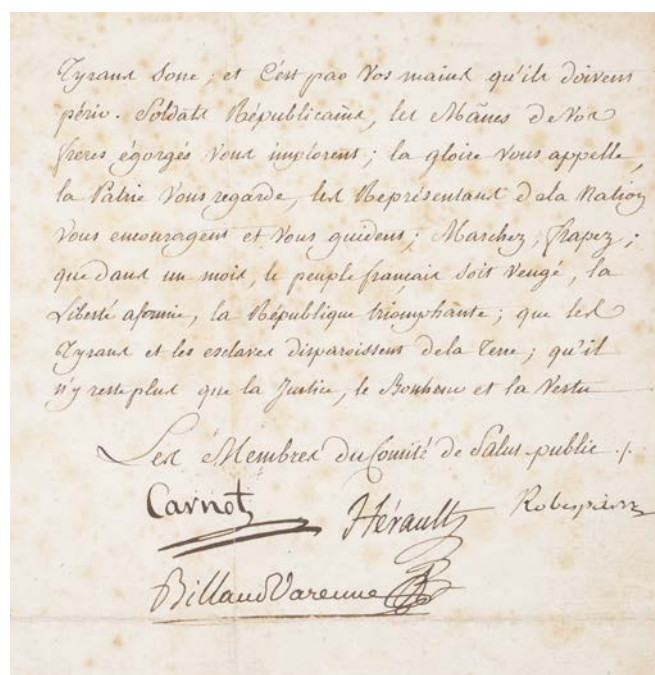 Tyrans sone ; et C'est pas Vos mains qu'ils doivent
périr. Soldats Républicains, les Mânes de Vos
freres égorgés Vous implorent ; la gloire Vous appelle,
la Patrie Vous regarde, les Représentans de la Nation
Vous encouragent et Vous guident ; Marchez, frapez ;
que dans un mois, le peuple français soit Vengé, la
Liberté afermie, la République triomphante ; que les
Tyrans et les esclaves disparoissent de la Terre ; qu'il
n'y reste plus que la Justice, le Bonheur et la Vertu
Les Membres du Comité de Salut public ./.
Carnot Hérault Robespierre
Billaud Varenne